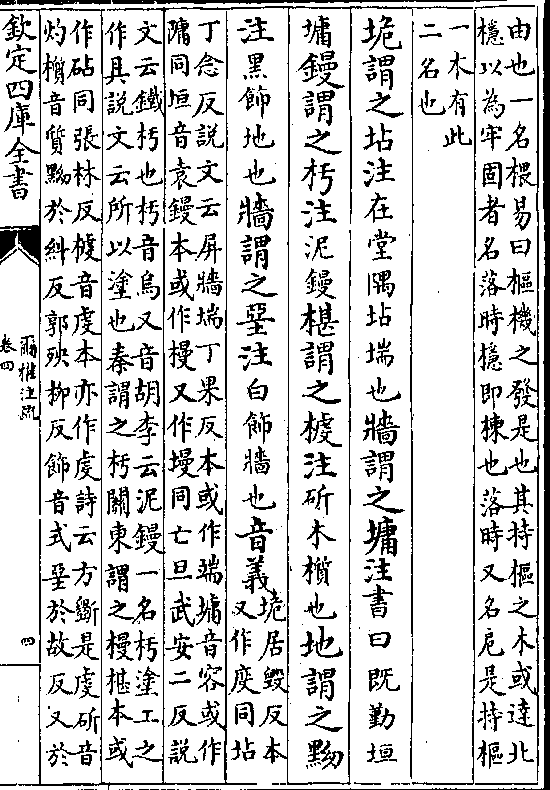 由也一名椳易曰樞機之發是也其持樞之木或達北
檼以為牢固者名落時檼即棟也落時又名戹是持樞
一木有此
二名也
垝謂之坫注在堂隅坫㙐也牆謂之墉注書曰既勤垣
墉鏝謂之杇注泥鏝椹謂之榩注斫木櫍也地謂之黝
注黑飾地也牆謂之堊注白飾牆也音義
垝居毀反本
又作庪同坫
丁念反說文云屏牆㙐丁果反本或作端墉音容或作
𨻱同垣音袁鏝本或作槾又作墁同亡旦武安二反說
文云鐵杇也杇音烏又音胡李云泥鏝一名杇塗工之
作具說文云所以塗也秦謂之杇關東謂之槾椹本或
作砧同張林反榩音虔本亦作虔詩云方斲是虔斫音
灼櫍音質黝於糾反郭殃柳反飾音式堊於故反又於
欽定四庫全書
爾雅注疏
卷四
四